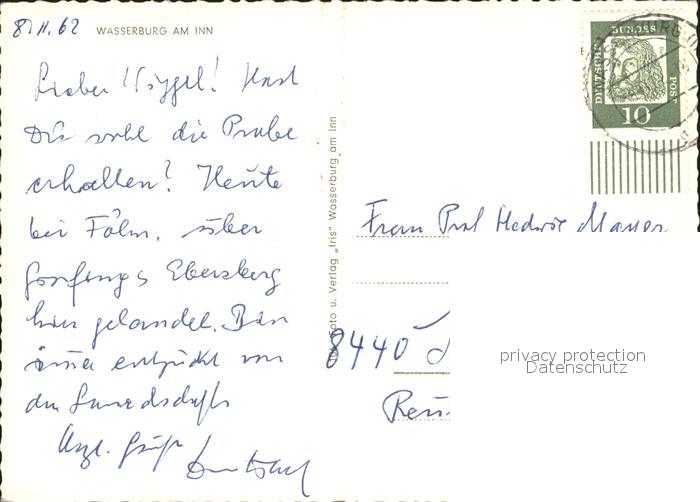 8.11.62 WASSERBURG AM INN
Lieber! Hast
Du wohl die Probe
erhalten? Heute
bei Föhn, über
Ebersberg
hier gelandet. Bin
immer entzückt von
der Landschaft
Herzl. Grüße
Foto u. Verlag „Iris" Wasserburg am Inn
DEUTSCHE BUNDES POST
10
Frau Prof Hedwig
8440
privacy protection
Datenschutz